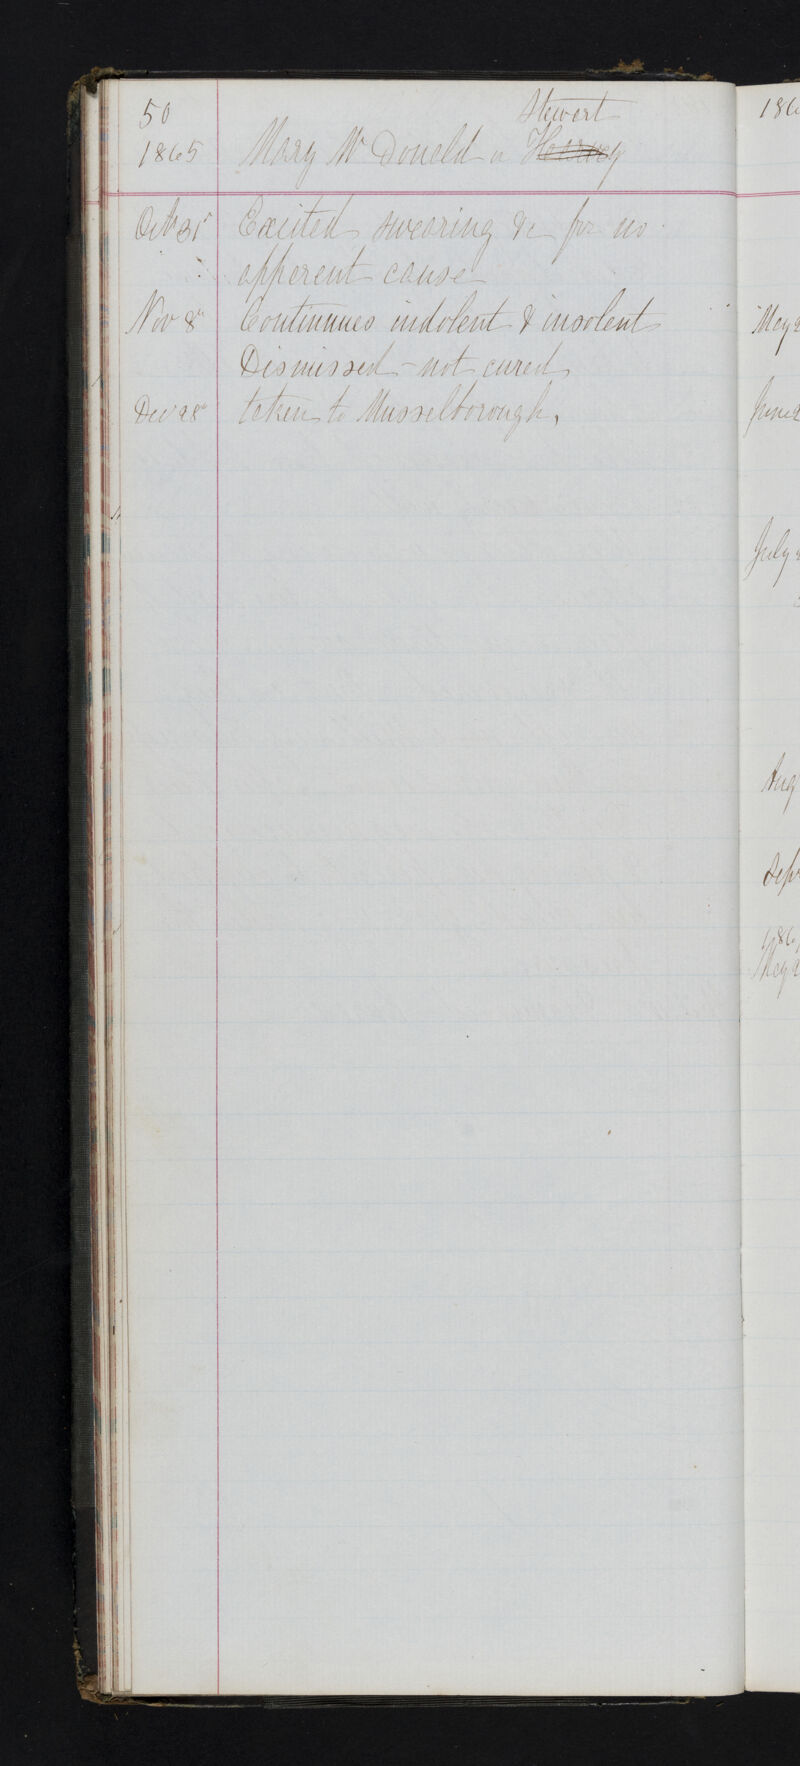 50
Stewart
1865 Mary Mc Donald or Hearvey
Octr 31st Excited swearing &c for no
apparent cause
Nov 8th Continuues indolent & insolent
Dismissed - not cured
Dec 28th taken to Musselborough,
186
May 2
June 2
July 2
Aug
Sepr
186
May 2